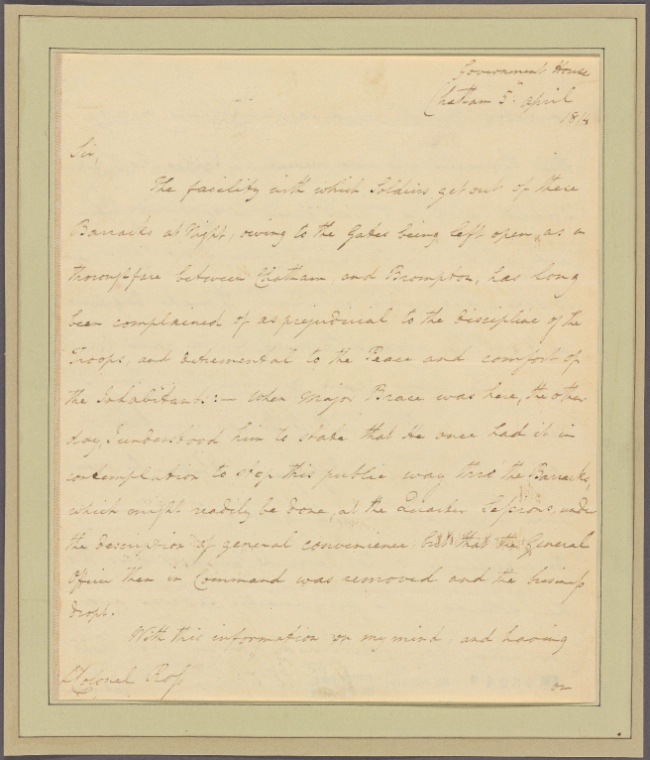 Government House
Chatham 5th April
181
Sir,
The facility with which Soldiers get out of these
Barracks at Night, owing to the Gates being left open, as a
thoroughfare between Chatham, and Brompton, has long
been complained of as prejudicial to the discipline of the
Troops, and detremental to the Peace and comfort of
the Inhabitants:— When Major Brace was here, the other
day, I understood him to state that He once had it in
contemplation to stop this public way thro the Barracks,
which might readily be done, at the Quarter Sessions, under
the description of general convenience but that the General
Officer then in Command was removed and the business
dropt.
With this information on my mind, and having
Colonel Ross
on